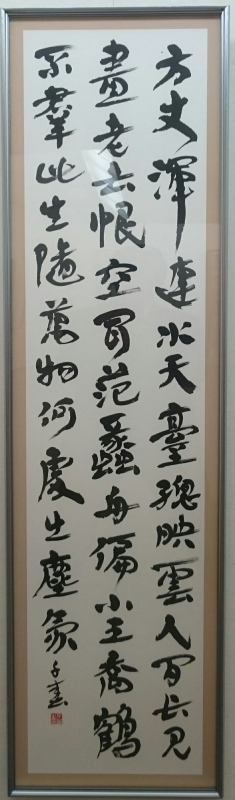 方丈渾連水天臺總映雲人間長見
畫老去恨空聞范蠡舟偏小王喬鶴
不羣此生隨萬物何處出塵氛